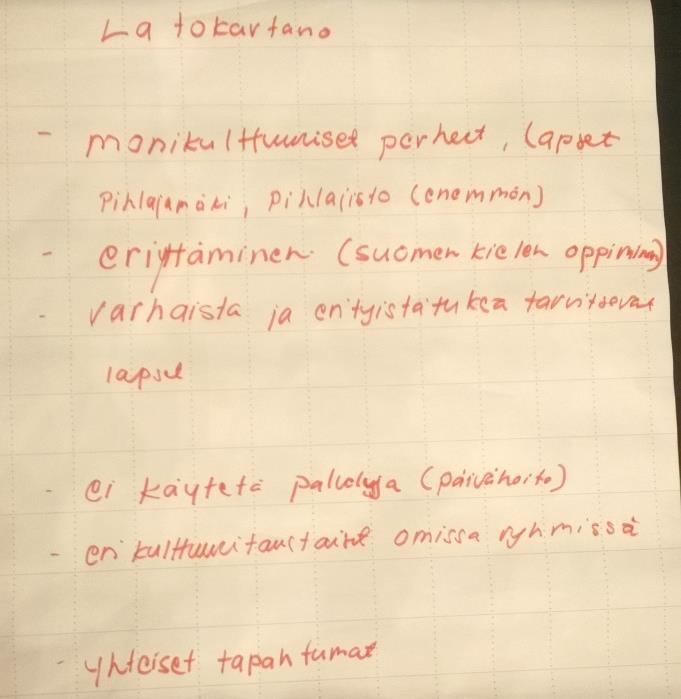 Latokartano
- monikulttuuriset perheet, lapset
Pihlajamäki, pihlajisto (enemmän)
- eriyttäminen (suomen kielen oppiminen)
- varhaista ja erityistä tukea tarvitsevat
lapset
- ei käytetä palveluja (päivähoito)
- eri kulttuuritaustaiset omissa ryhmissä
- yhteiset tapahtumat